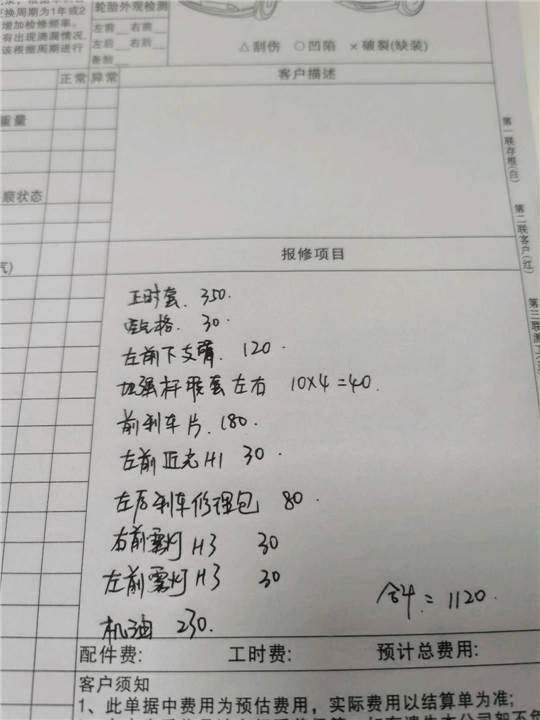 换周期为1年或2
轮胎外观检测
增加检修频率。
有出现滴漏情况,
左前__右前__
该根据周期进行
左后__右后__
备胎__
△刮伤 ○凹陷 ×破裂(缺装)
正常 异常
客户描述
重量
第一联存根(白)
顺状态
第二联客户(红)
报修项目
气)
正时套. 350.
空气格. 30.
左前下支臂. 120.
加强杆胶套左右 10×4=40.
前刹车片. 180.
左前近光H1 30.
左后刹车修理包 80.
右前雾灯H3 30
左前雾灯H3 30
合计: = 1120.
机油 230.
配件费: 工时费: 预计总费用:
客户须知
1、此单据中费用为预估费用,实际费用以结算单为准;